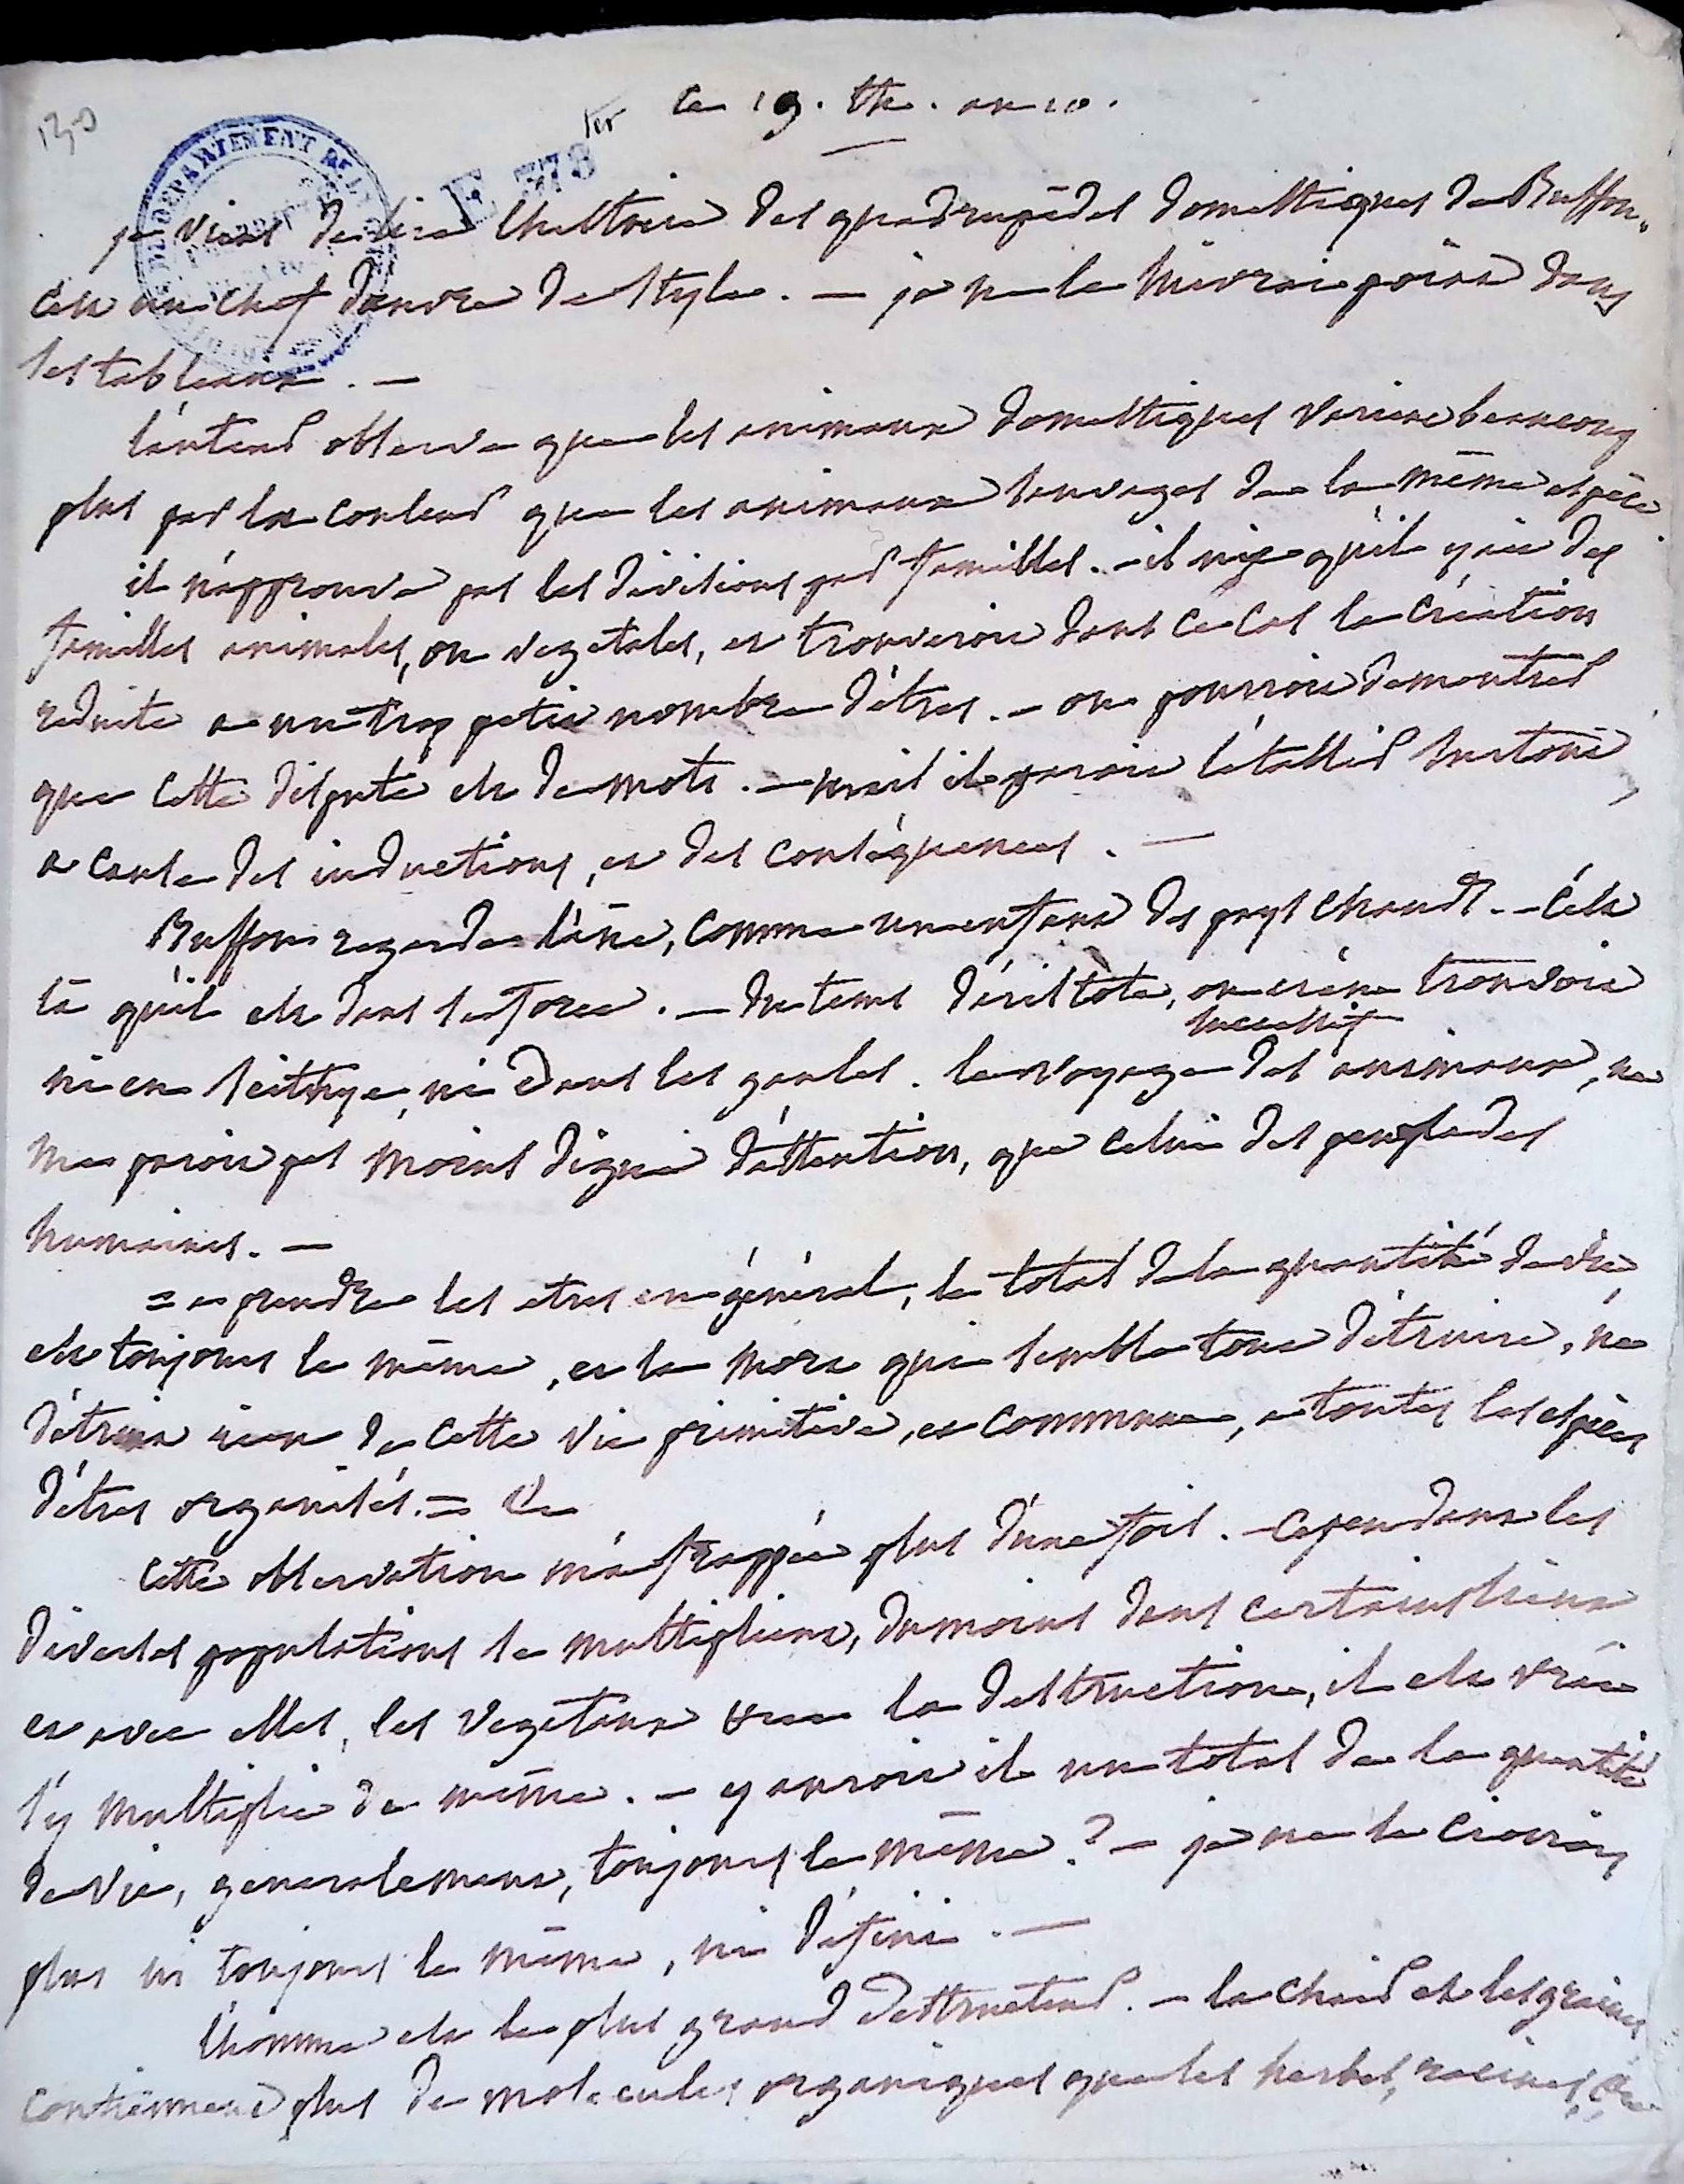 130
le 19. th. an 10.
ter
E 378
DEPARTEMENT
je viens de lire l'histoire des quadrupèdes domestiques de Buffon.
c'est un chef d'œuvre de style. — je ne le suivrai point dans
ses tableaux. —
l'auteur observe que les animaux domestiques varient beaucoup
plus par la couleur que les animaux sauvages de la même espèce
il n'approuve pas les divisions par familles. — il nie qu'il y ait des
familles animales, ou vegetales, et trouveroit dans ce cas la création
reduite a un trop petit nombre d'êtres. — on pourroit demontrer
que cette dispute est de mots. — mais il paroit s'établir surtout
a cause des inductions, et des conséquences. —
Buffon regarde l'âne, comme un enfant des pays chauds. — c'est
là qu'il est dans sa force. — du tems d'aristote, on n'en trouvoit
successif
ni en scithye, ni dans les gaules. le voyage des animaux, ne
me paroit pas moins digne d'attention, que celui des peuplades
humaines. —
= a prendre les etres en général, le total de la quantité de vie,
est toujours le même, et la mort qui semble tout détruire, ne
détruit rien de cette vie primitive, et commune, a toutes les espèces
d'êtres organisés. = &c
cette observation m'a frappée plus d'une fois. — cependant les
diverses populations se multiplient, du moins dans certains lieux
et avec elles, les vegetaux la destruction, il est vrai
s'y multiplie de même. — y auroit il un total de la quantité
de vie, generalement, toujours le même? — je ne le croirois
plus ni toujours le même, ni défini. —
l'homme est le plus grand destructeur. — la chair et les graines
contiennent plus de molecules organiques que les herbes, racines, &c